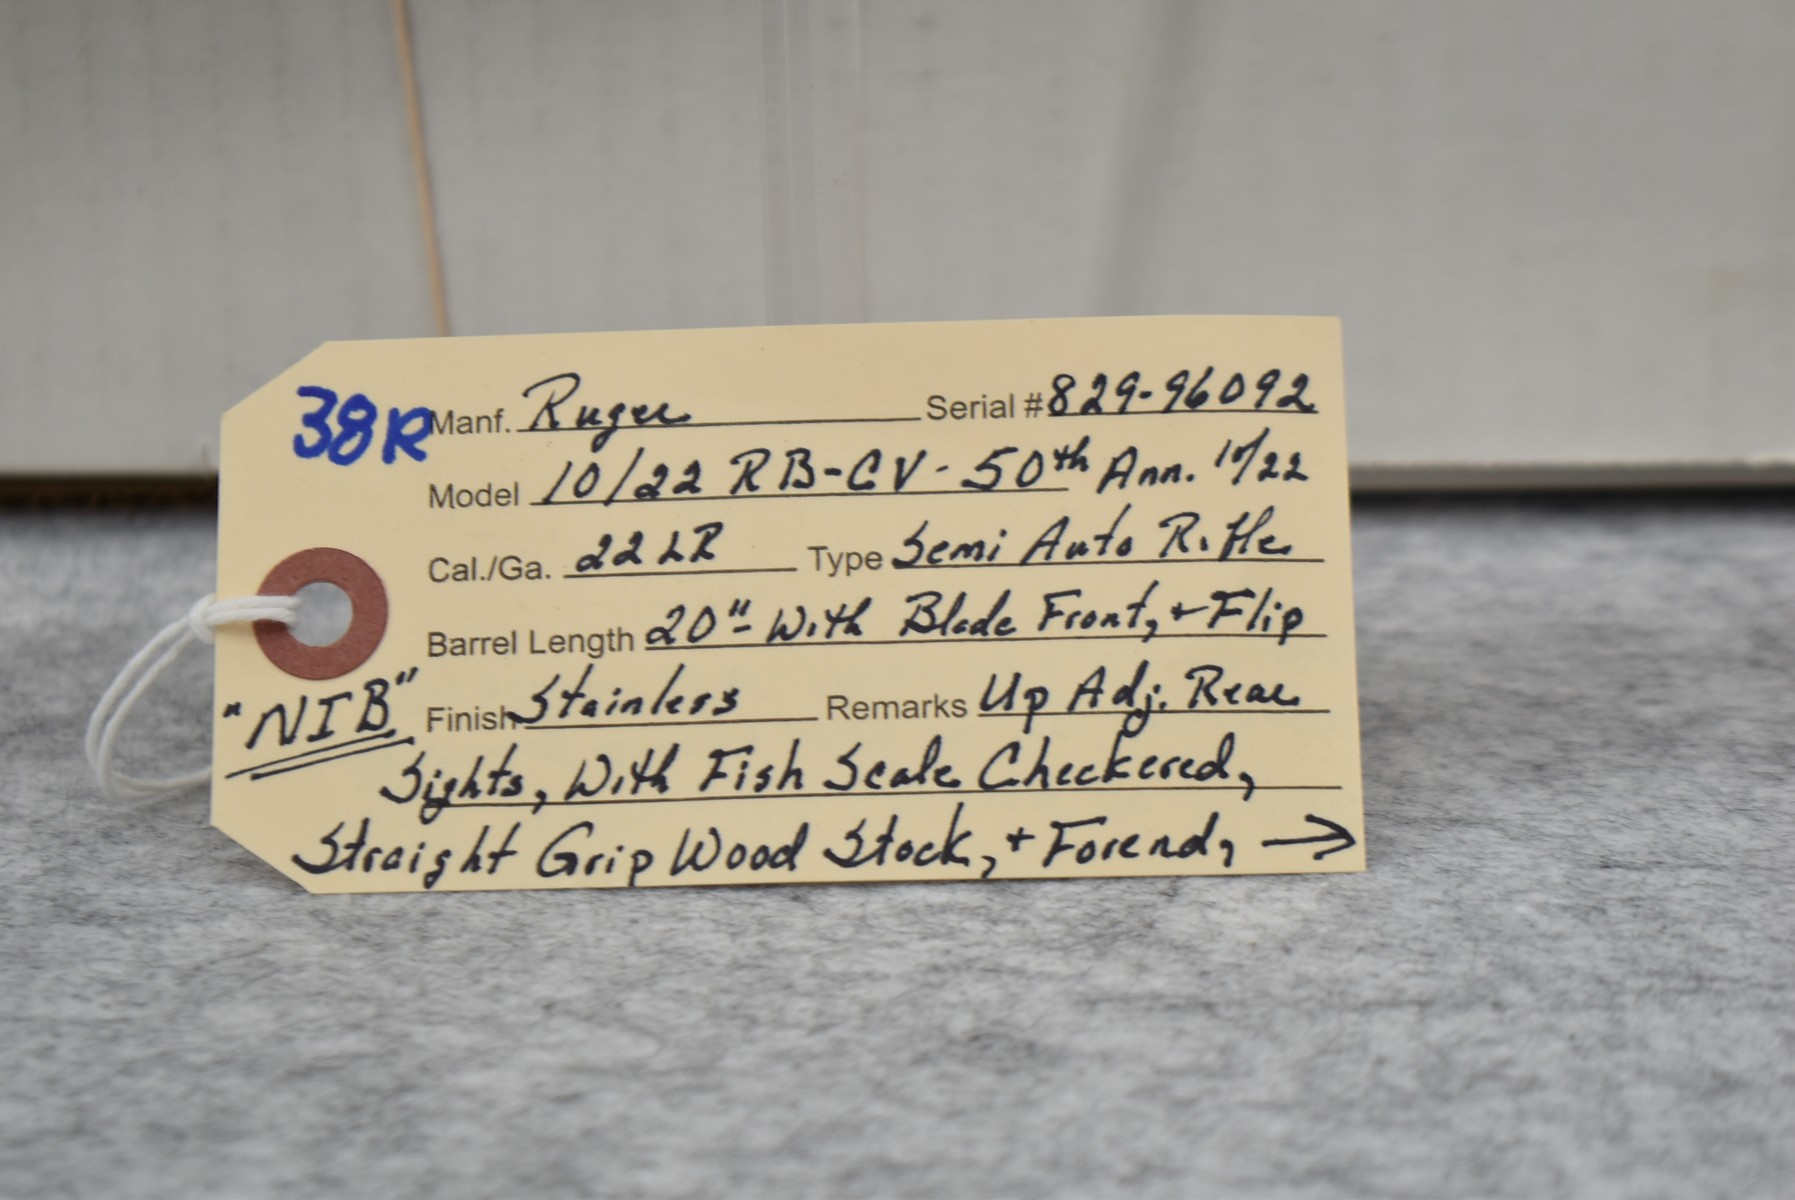 38R
Manf. Ruger Serial # 829-96092
Model 10/22 RB-CV-50th Ann. 10/22
Cal./Ga. 22 LR Type Semi Auto Rifle
Barrel Length 20"- With Blade Front, + Flip
"NIB" Finish Stainless Remarks Up Adj. Rear
Sights, With Fish Scale Checkered,
Straight Grip Wood Stock, + Forend, →